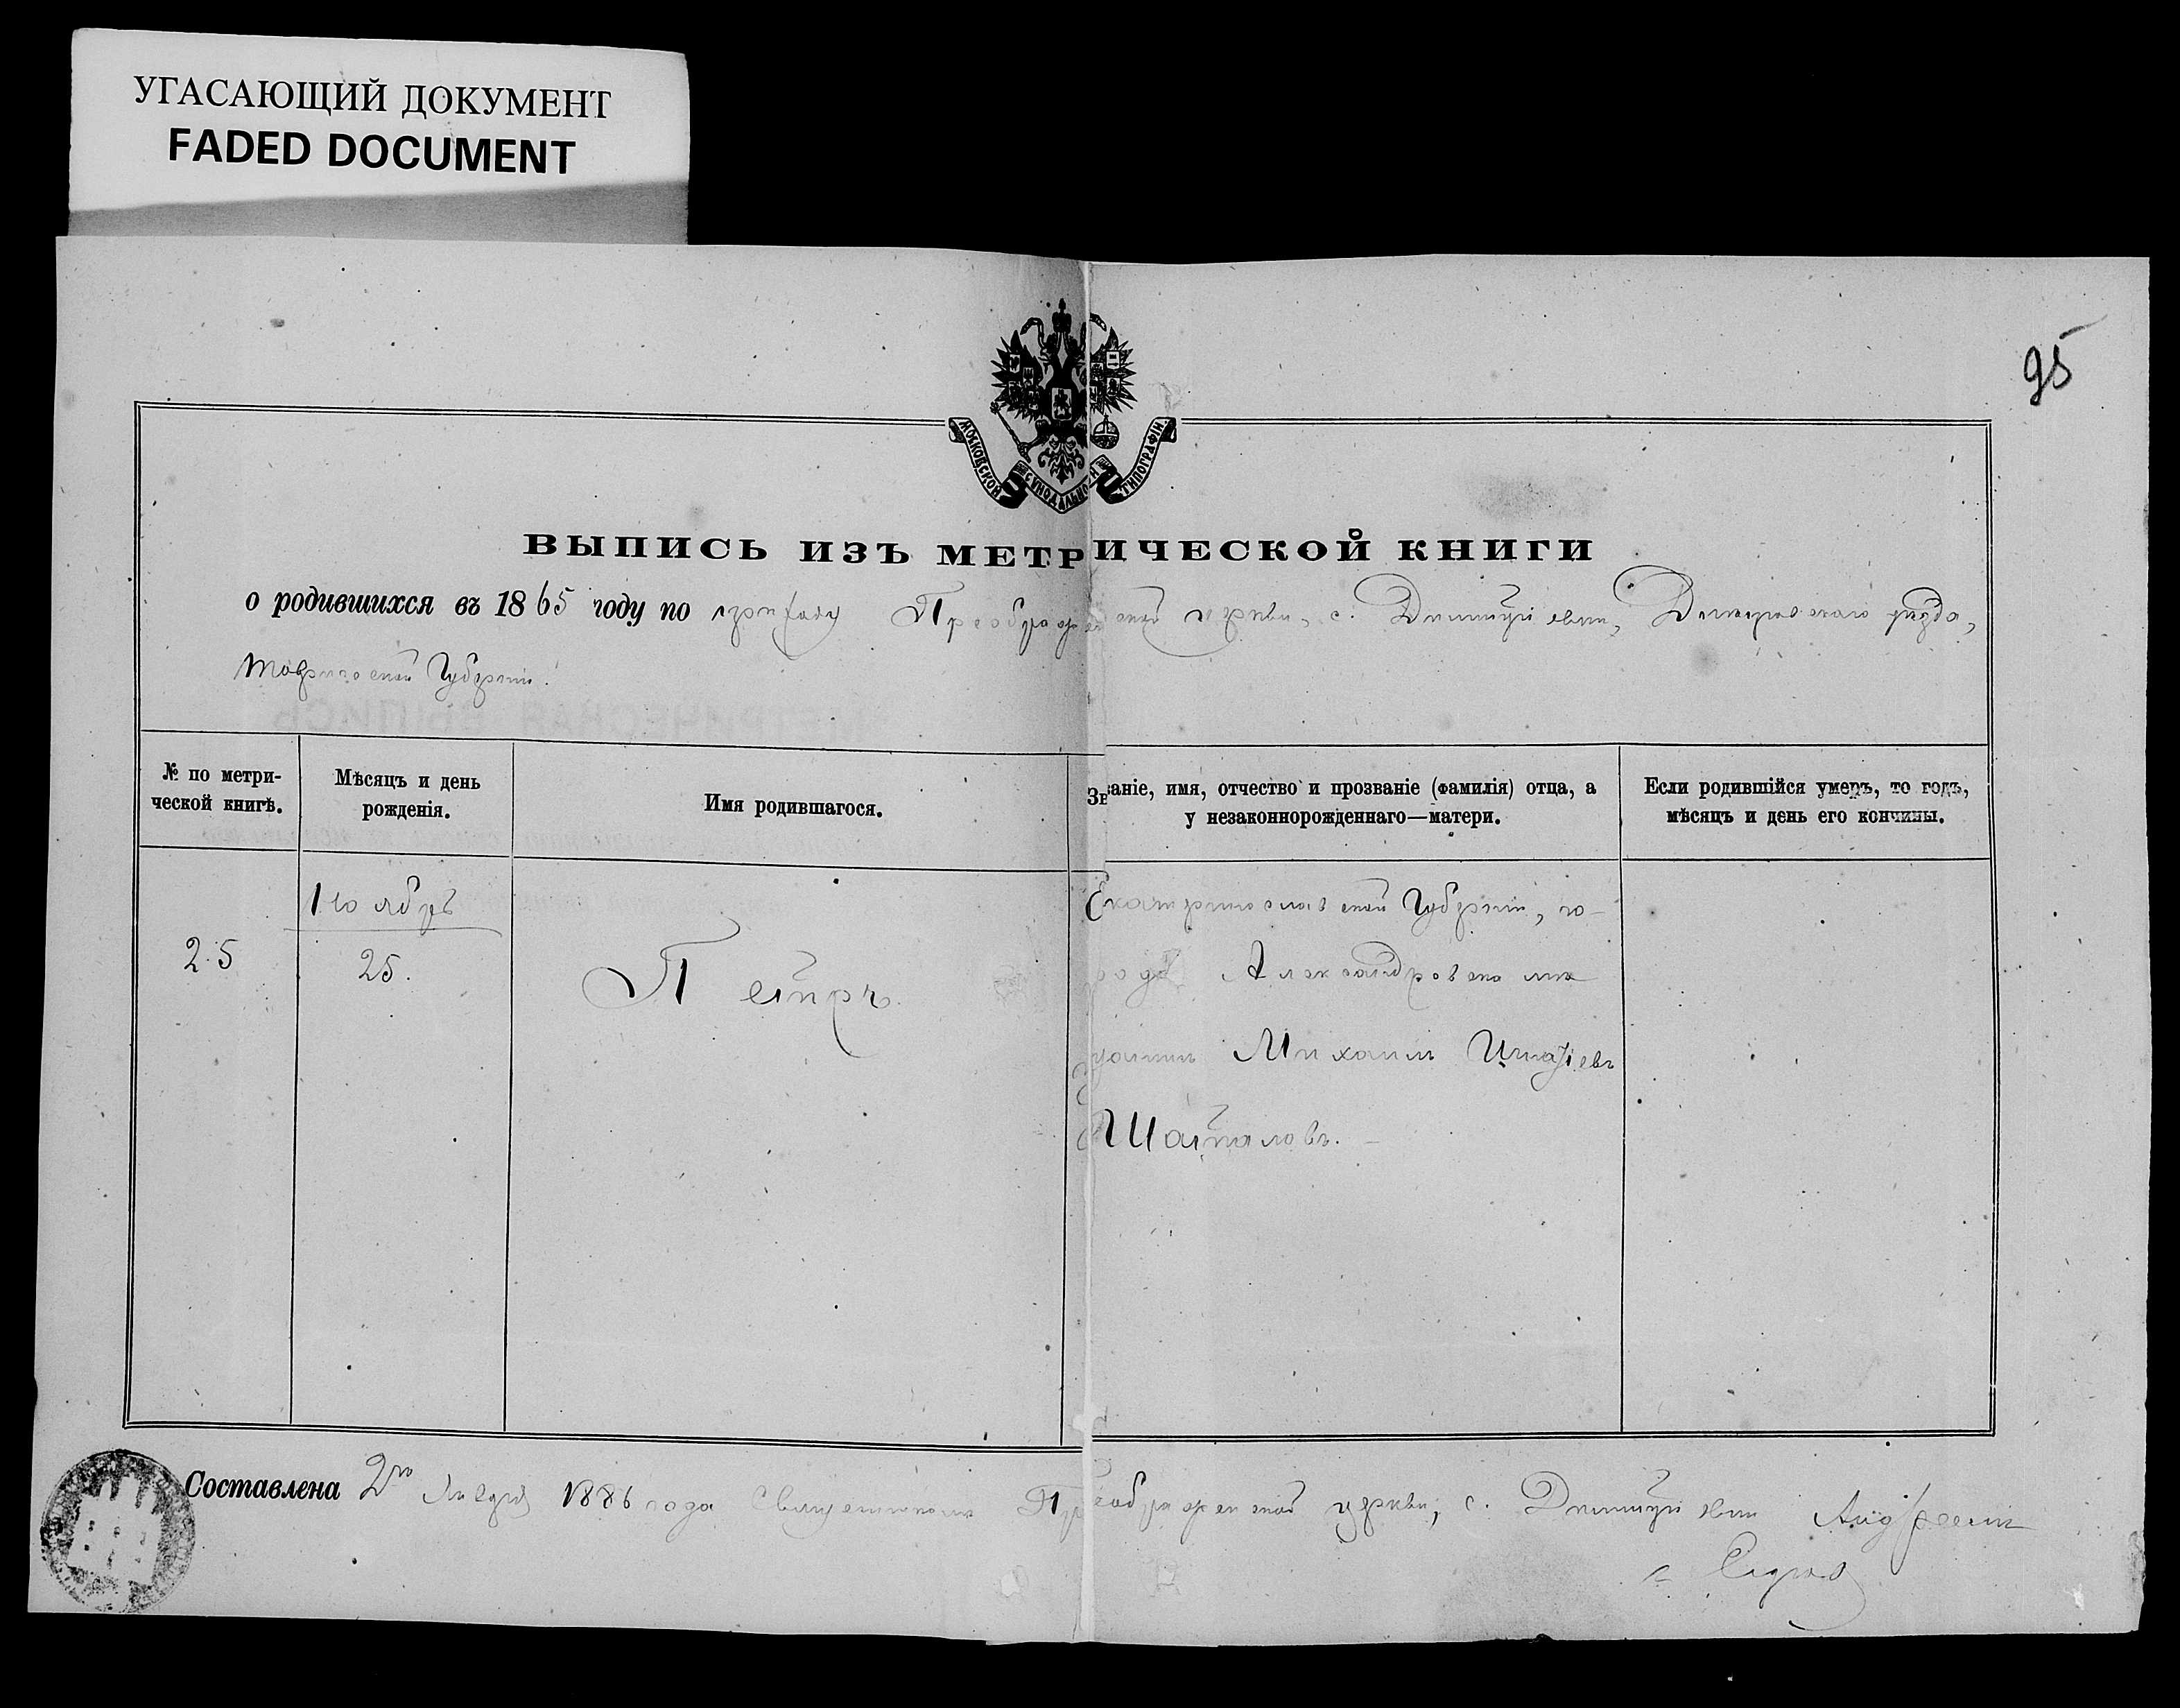 УГАСАЮЩИЙ ДОКУМЕНТ
FADED DOCUMENT
95
МОСКОВСКОЙ СѴНОДАЛЬНОЙ ТИПОГРАФІИ.
ВЫПИСЬ ИЗЪ МЕТРИЧЕСКОЙ КНИГИ
о родившихся въ 1865 году по приходу церкви, с. Днепровскаго уѣзда,
Таврической Губерніи.
№ по метри-
ческой книгѣ.
Мѣсяцъ и день
рожденія.
Имя родившагося.
Званіе, имя, отчество и прозваніе (фамилія) отца, а
у незаконнорожденнаго—матери.
Если родившійся умеръ, то годъ,
мѣсяцъ и день его кончины.
25
Ноябрь
25.
Петръ.
Екатеринославской Губерніи, го-
рода Александровска мѣ
щанинъ Михаилъ Игнатіевъ
Шаталовъ.
Составлена 2го Января 1886 года Священникомъ церкви, с.